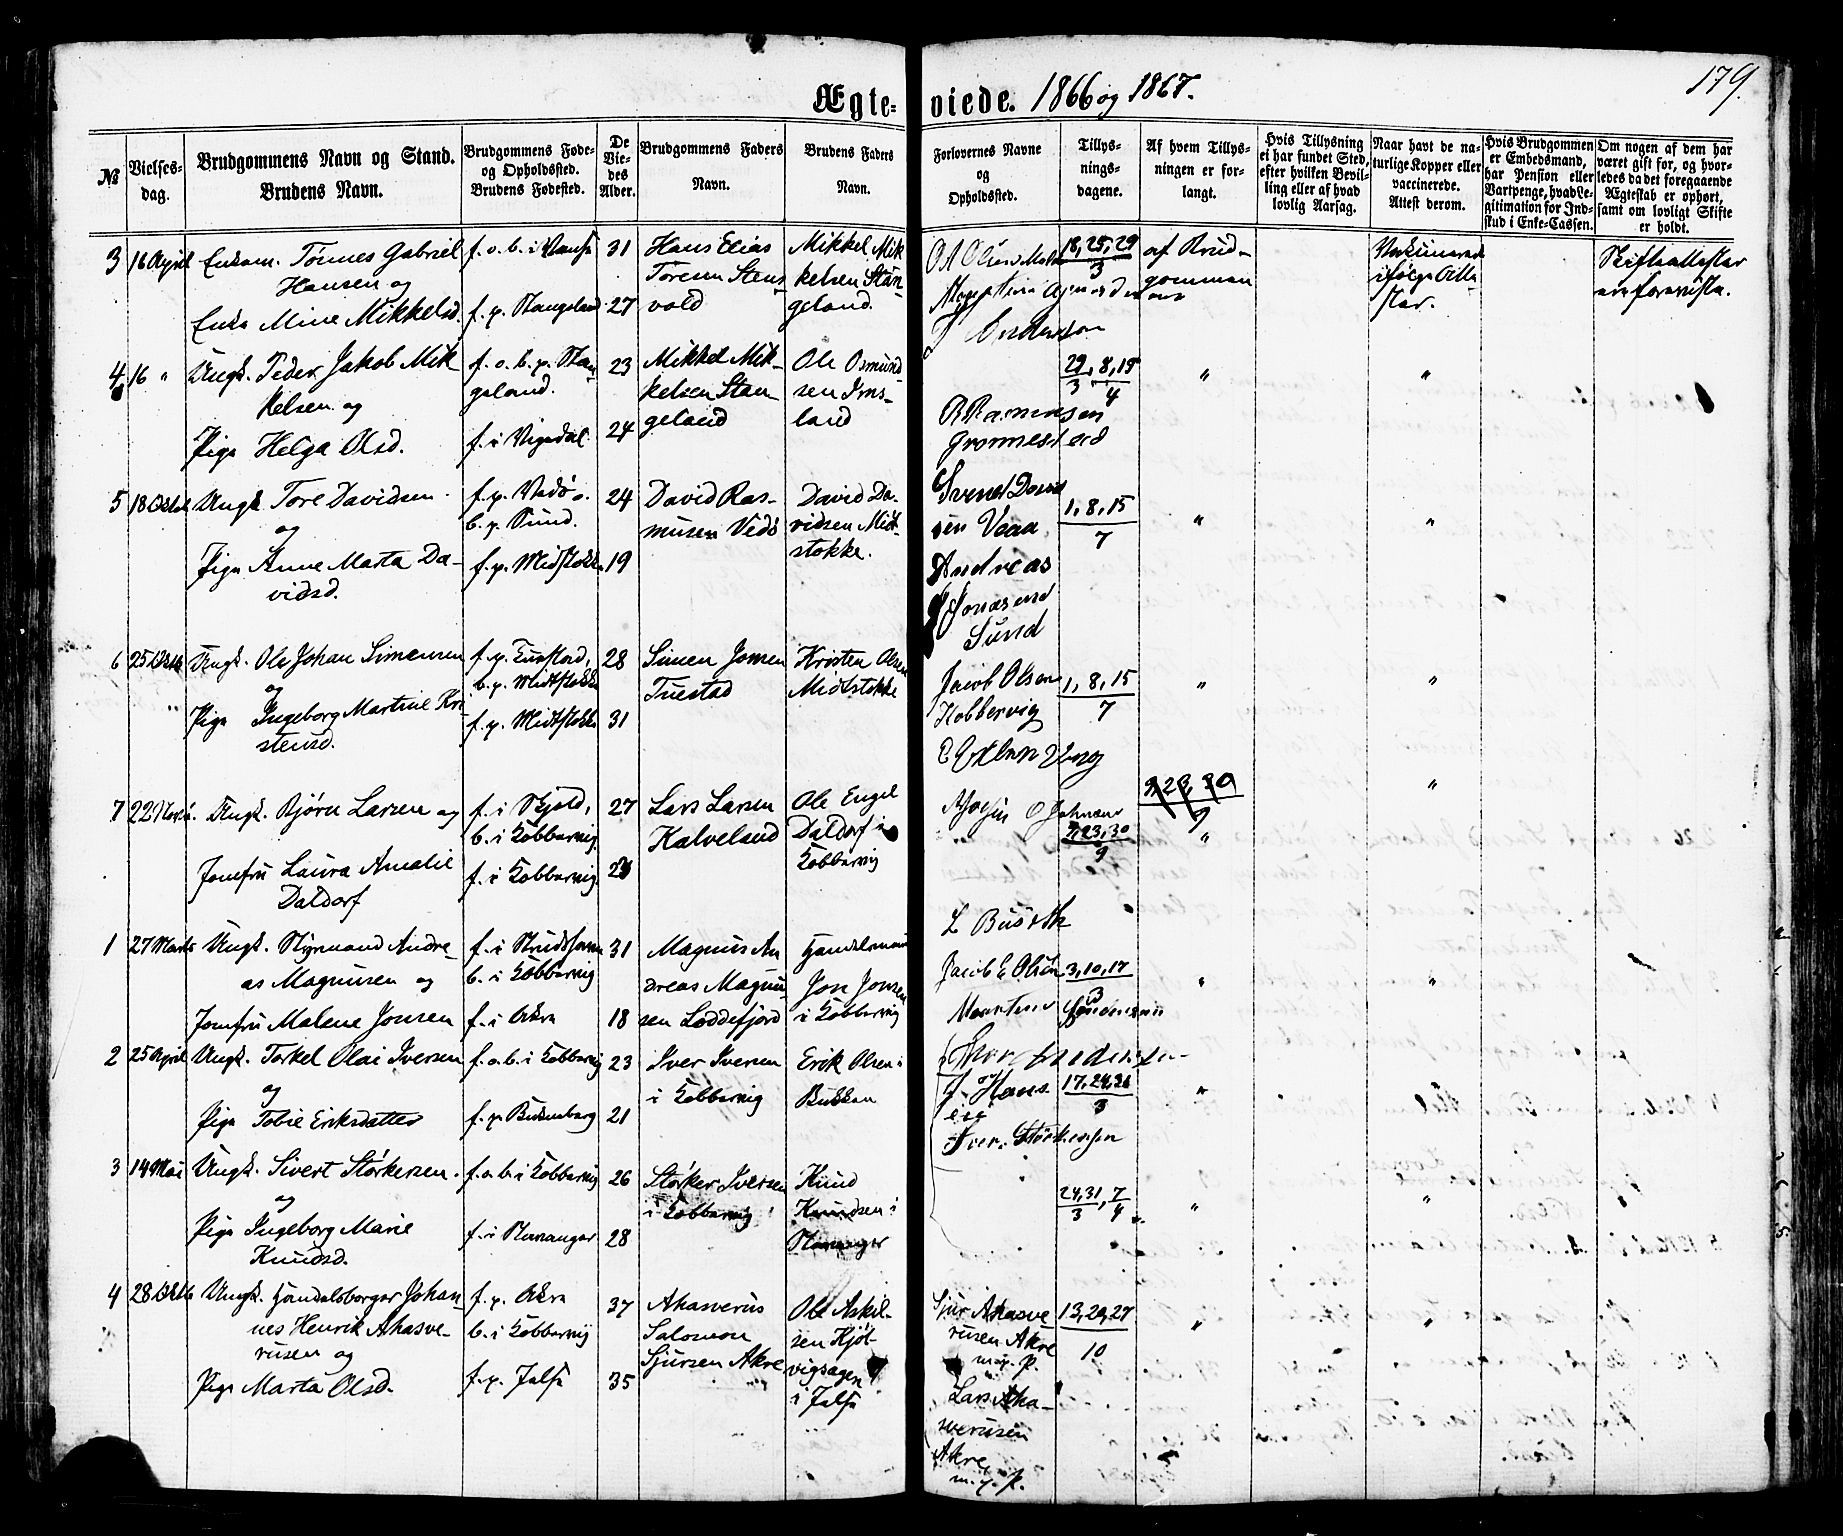 179.
Ægte- viede. 1866 og 1867.
№
Vielses-
dag.
Brudgommens Navn og Stand.
Brudens Navn.
Brudgommens Føde-
og Opholdssted.
Brudens Fødested.
De
Vie-
des
Alder.
Brudgommens Faders
Navn.
Brudens Faders
Navn.
Forlovernes Navne
og
Opholdssted.
Tillys-
nings-
dagene.
Af hvem Tillys-
ningen er for-
langt.
Hvis Tillysning
ei har fundet Sted,
efter hvilken Bevil-
ling eller af hvad
lovlig Aarsag.
Naar havt de na-
turlige Kopper eller
vaccinerede.
Attest derom.
Hvis Brudgommen
er Embedsmand,
har Pension eller
Vartpenge, hvad Le-
gitimation for Ind-
skud i Enke-Cassen.
Om nogen af dem har
været gift for, og hvor-
ledes da det foregaaende
Ægteskab er ophørt,
samt om lovligt Skifte
er holdt.
3 16 April Enkem. Tönnes Gabriel
Hansen og
Enke Mine Mikkelsd.
f. o. b. i
f. p. Stangeland
31
27
Hans Elias
Tøresen Stens-
vold
Mikkel Mik-
kelsen Stan-
geland.
18, 25, 29
3
af Brud-
gommen
Vaksinerede
ifølge Atte-
ster.
Skifteattester
ere foreviste.
4 16 " Ungk. Peder Jakob Mik-
kelsen og
Pige Helga Olsd.
f. o. b. p. Stan-
geland.
f. i Vigedal.
23
24
Mikkel Mik-
kelsen Stan-
geland
Ole Osmund-
sen Ims-
land
R Rasmussen
29, 8, 15
3 4
"
"
5 18 Oktob Ungk. Tore Davidsen
og
Pige Anne Marta Da-
vidsd.
f. p. Vedö o.
b. p. Sund.
f. p. Midstokke
24
19
David Ras-
musen Vedö
David Da-
vidsen Midt-
stokke.
Svend David
sen Vaaa
Andreas
Jonasend
Sund
1, 8, 15
7
"
"
6 25 Oktb Ungk. Ole Johan Simensen
og
Pige Ingeborg Martine Kri-
stensd.
f. p. Tuestad,
b. p. Midtstokke
f. p. Midtstokke
28
31
Simen Jonsen
Tuestad
Kristen Olsen
Midtstokke
Jacob Olsen
Kobbervig
1, 8, 15
7
"
"
7 22 Novb. Ungk. Björn Larsen og
Jomfru Laura Amalie
Daldorf
f. i Skjold,
b. i Kobbervig.
f. i Kobbervig.
27
Lars Larsen
Kalveland
Ole Engel
Daldorf i
Kobbervig
23, 30
9
"
"
1 27 Marts Ungk. Styrmand Andre-
as Magnusen og
Jomfru Malene Jonsen
b. i Kobbervig
f. i Akre
31
18
Magnus An-
dreas Magnu-
sen Loddefjord
Handelsmand
Jon Jonsen
i Kobbervig
Jacob E Olsen
3, 10, 17
3
"
"
2 25 April Ungk. Torkel Olai Iversen
og
Pige Tobie Eriksdatter
f. o. b. i Kobbervig
f. p. Bukkenberg
23
21
Iver Iversen
i Kobbervig
Erik Olsen i
Bukken
17, 24, 31
3
"
3 14 Mai Ungk. Sivert Störkersen.
og
Pige Ingeborg Marie
Knudsd.
f. o. b. i Kobbervig
f. i Stavanger
26
28
Störker Iversen
i Kobbervig
Knud
Knudsen i
Stavanger
24, 31, 7
3 4
"
"
4 28 Oktb Ungk. Handelsborger Johan-
nes Henrik Ahasve-
rusen og
Pige Marta Olsd.
f. p. Akre
b. i Kobbervig
f. p. Jelse
37
35
Ahasverus
Salomon
Sjursen Akre
Ole Askil-
sen Hjöl-
vigsagen
i Jelse
Sjur Ahasve
rusen Akre
m. p. P.
Lars Aha-
sverusen
Akre
m. p. P.
13, 20, 27
10
"
"